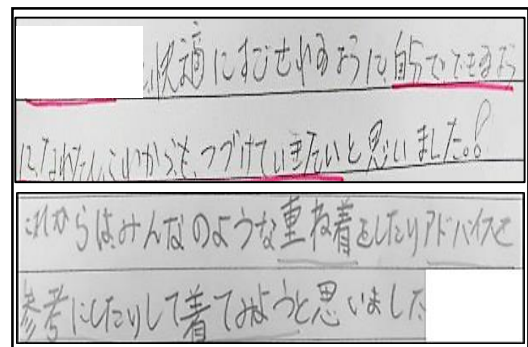 快適にすごせれるように、自分でできるよう
になれたし、これからも、つづけていきたいと思いました。!
これからは、みんなのような重ね着をしたりアドバイスを
参考にしたりして着てみようと思いました